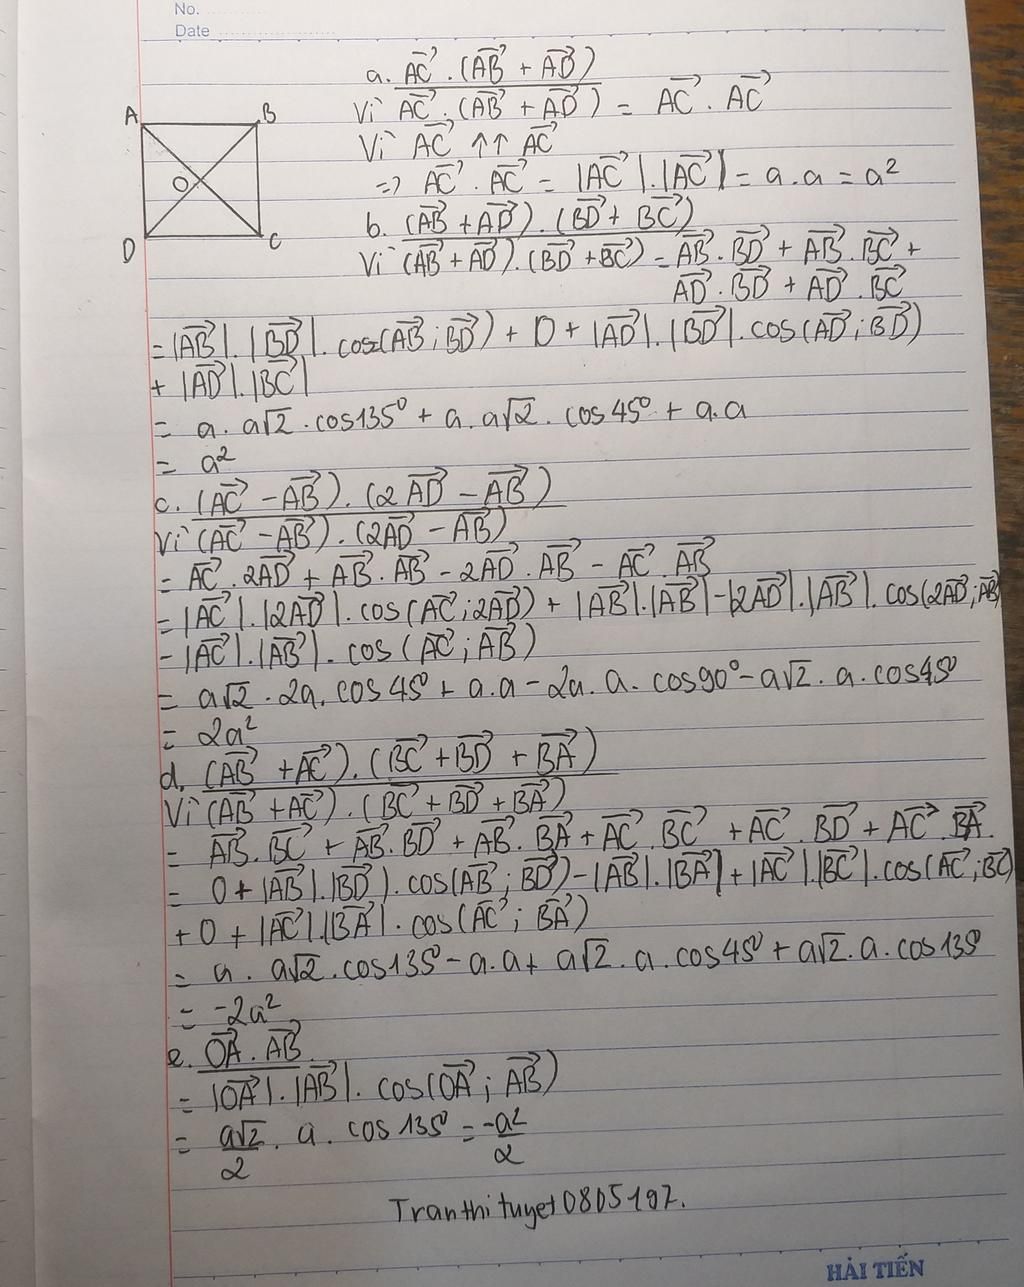 No.
Date
A
B
O
D
C
a. AC⃗ . (AB⃗ + AD⃗)
Vì AC⃗ . (AB⃗ + AD⃗) = AC⃗ . AC⃗
Vì AC⃗ ↑↑ AC⃗
=> AC⃗ . AC⃗ = |AC⃗|.|AC⃗| = a.a = a²
b. (AB⃗ + AD⃗) . (BD⃗ + BC⃗)
Vì (AB⃗ + AD⃗) . (BD⃗ + BC⃗) = AB⃗ . BD⃗ + AB⃗ . BC⃗ +
AD⃗ . BD⃗ + AD⃗ . BC⃗
= |AB⃗|.|BD⃗| . cos(AB⃗ ; BD⃗) + 0 + |AD⃗|.|BD⃗| . cos(AD⃗ ; BD⃗)
+ |AD⃗|.|BC⃗|
= a . a√2 . cos135° + a . a√2 . cos45° + a.a
= a²
c. (AC⃗ - AB⃗) . (2AD⃗ - AB⃗)
Vì (AC⃗ - AB⃗) . (2AD⃗ - AB⃗)
= AC⃗ . 2AD⃗ + AB⃗ . AB⃗ - 2AD⃗ . AB⃗ - AC⃗ . AB⃗
= |AC⃗|.|2AD⃗| . cos(AC⃗ ; 2AD⃗) + |AB⃗|.|AB⃗| - |2AD⃗|.|AB⃗| . cos(2AD⃗ ; AB⃗)
- |AC⃗|.|AB⃗| . cos(AC⃗ ; AB⃗)
= a√2 . 2a . cos45° + a.a - 2a . a . cos90° - a√2 . a . cos45°
= 2a²
d. (AB⃗ + AC⃗) . (BC⃗ + BD⃗ + BA⃗)
Vì (AB⃗ + AC⃗) . (BC⃗ + BD⃗ + BA⃗)
= AB⃗ . BC⃗ + AB⃗ . BD⃗ + AB⃗ . BA⃗ + AC⃗ . BC⃗ + AC⃗ . BD⃗ + AC⃗ . BA⃗
= 0 + |AB⃗|.|BD⃗| . cos(AB⃗ ; BD⃗) - |AB⃗|.|BA⃗| + |AC⃗|.|BC⃗| . cos(AC⃗ ; BC⃗)
+ 0 + |AC⃗|.|BA⃗| . cos(AC⃗ ; BA⃗)
= a . a√2 . cos135° - a.a + a√2 . a . cos45° + a√2 . a . cos135°
= -2a²
e. OA⃗ . AB⃗
= |OA⃗|.|AB⃗| . cos(OA⃗ ; AB⃗)
= a√2/2 . a . cos135° = -a²/2
Tranthituyet0805197.
HẢI TIẾN